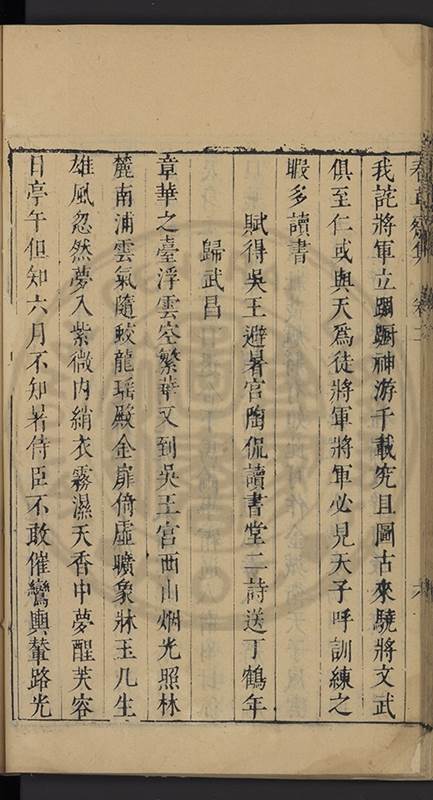 春草齋集 卷十二
我詫將軍立躊躇神游千載究且圖古來驍將文武
俱至仁或與天爲徒將軍將軍必見天子呼訓練之
暇多讀書
賦得吳王避暑宮陶侃讀書堂二詩送丁鶴年
歸武昌
章華之臺浮雲空繁華又到吳王宮西山烟光照林
麓南浦雲氣隨蛟龍瑶殿金扉倚虛曠象牀玉几生
雄風忽然夢入紫微内綃衣霧濕天香中夢醒芙容
日亭午但知六月不知暑侍臣不敢催鸞輿輦路光